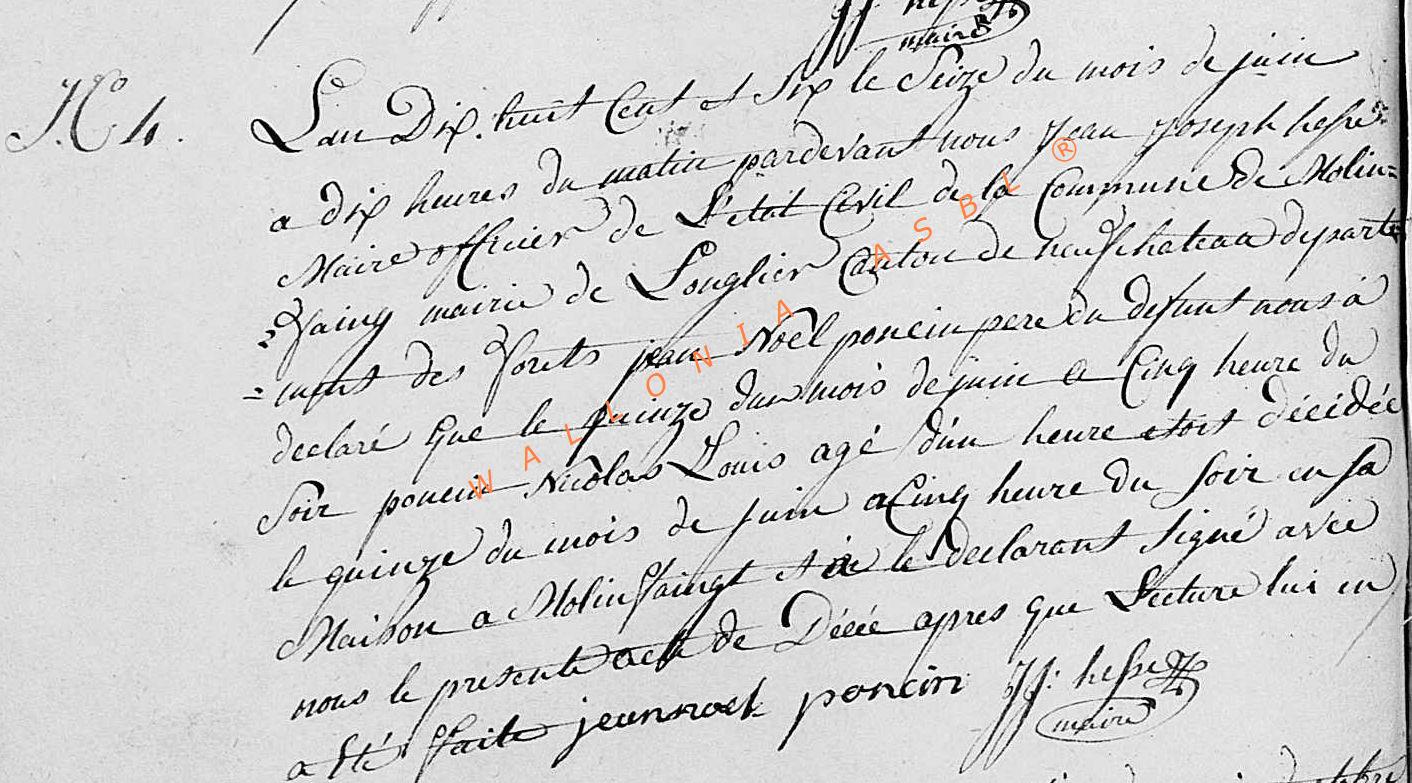 JJ: hesse
maire
N.o 4.
L'an Dix. huit Cent et Six le Seize du mois de juin
a dix heures du matin pardevant nous Jean Joseph hesse
Maire officier de L'etat Civil de la Commune de Molin=
=faing mairie de Longlier Canton de neufchateau departe
=ment des forets jean Noël poncin pere du defunt nous à
declaré que le quinze du mois de juin a Cinq heure du
Soir poncin Nicolas Louis agé d'un heure etoit décédée
le quinze du mois de juin a Cinq heure du soir en sa
Maison a Molinfaingt et à le declarant signé avec
nous le presente acte de Décée apres que Lecture lui en
a été faite jean noel poncin JJ: hesse
maire
WALLONIA ASBL ®